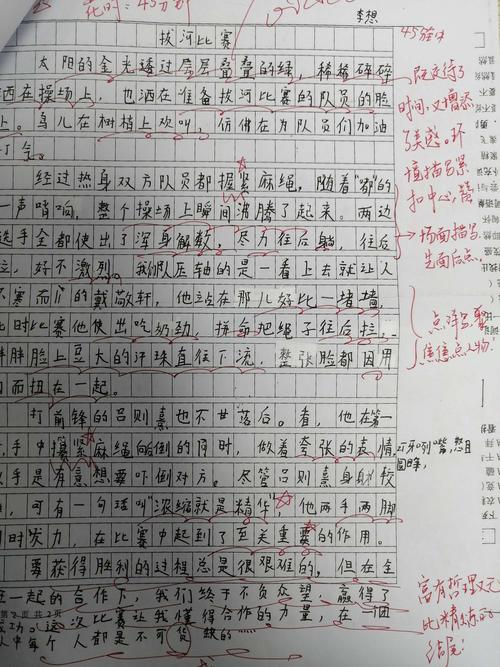 花的:45分钟
李想
45分钟
拔河比赛
太阳的金光透过层层叠叠的绿，稀稀碎碎
洒在操场上，也洒在准备拔河比赛的队员的脸
上。鸟儿在树梢上欢叫，仿佛在为队员们加油
打气。
经过热身双方队员都握紧麻绳，随着"嘟"的
一声哨响，整个操场上瞬间沸腾了起来。两边
选手全都使出了浑身解数，尽力往后躺，往后
拉，好不激烈。我们队压轴的是一看上去就让人
不寒而的戴敬轩，他站在那儿好比一堵墙，
此时比赛他使出吃奶劲，拼命把绳子往后拉，
胖胖脸上豆大的汗珠直往下流，整张脸都因用
力而扭在一起。
打前锋的吕则熹也不甘落后。看，他在第一
手中攥紧麻绳向后倒的同时，做着夸张的表情
手是有意想要吓倒对方。尽管吕则熹身材较
，可有一句话叫"浓缩就是精华"，他两手两脚
同时发力，在比赛中起到了至关重要的作用。
要获得胜利的过程总是很艰难的，但在全
在一起的合作下，我们终于不负众望，赢得了
成功。这次比赛让我懂得合作的力量，在一团
人中每个人都是不可或缺的……
既交待了
时间，又增添
了美感。环
境描写紧
扣中心，
场面描写
先面后点。
点
焦点人物！
龇牙咧嘴，怒目
圆睁，
富有哲理又
比精炼的
结尾！